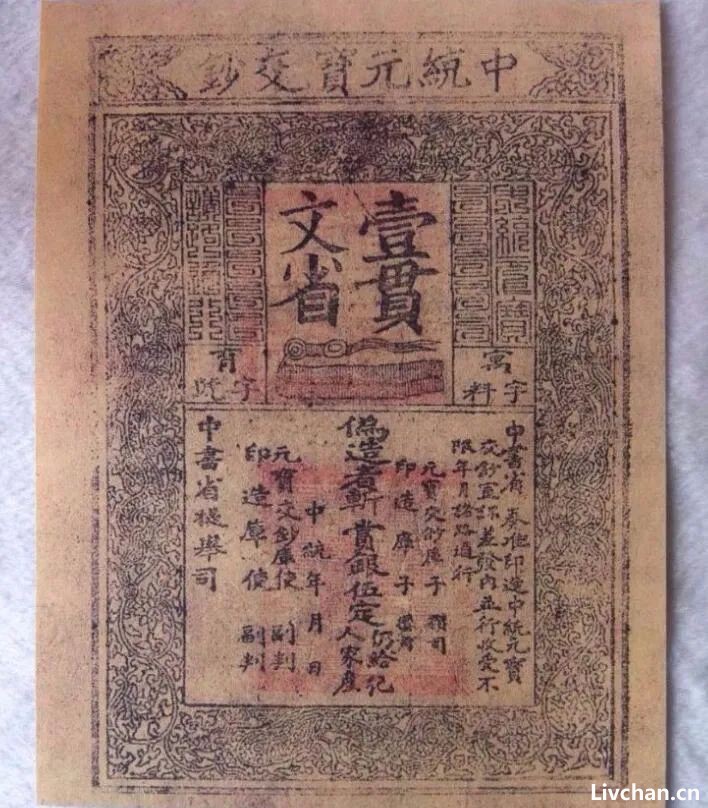 中統元寶交鈔
壹貫
文省
寓字料
育字號
中書省 奏准印造中統元寶
交鈔宣課差發內並行收受不
限年月諸路通行
元寶交鈔庫子 攢司
印造庫子 攢司
偽造者斬 賞銀伍定 仍給犯人家產
中統年月日
元寶交鈔庫使 副判
印造庫使 副判
中書省提舉司
Livchan.cn